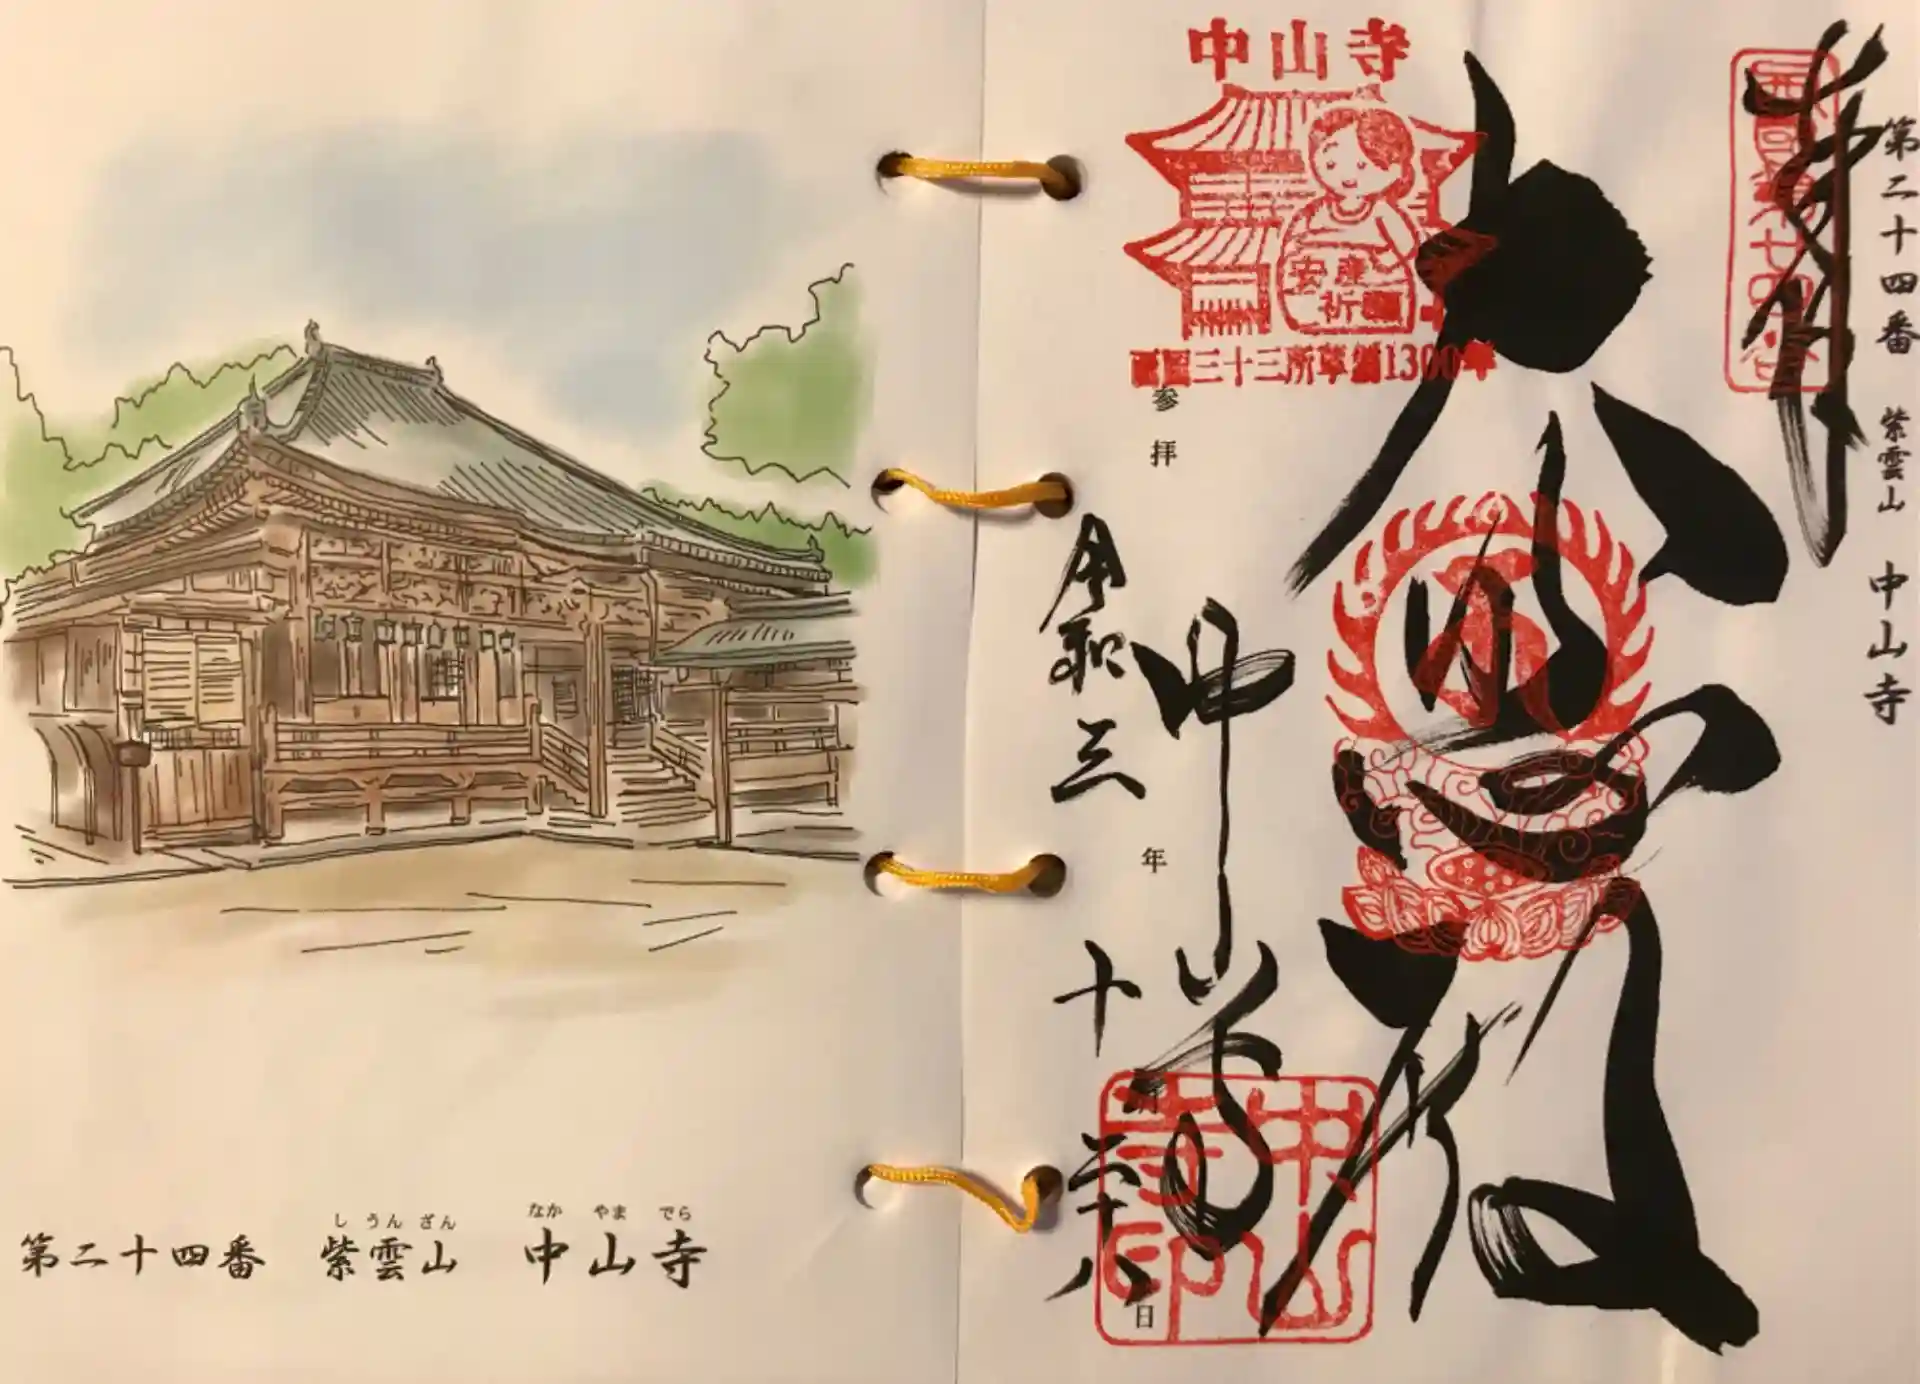 第二十四番 紫雲山 中山寺
しうんざん なかやまでら
第二十四番 紫雲山 中山寺
奉
大悲殿
中山寺
安産
祈願
西国三十三所草創1300年
参拝
令和三年
十月
二十八日
中山寺
中山寺印